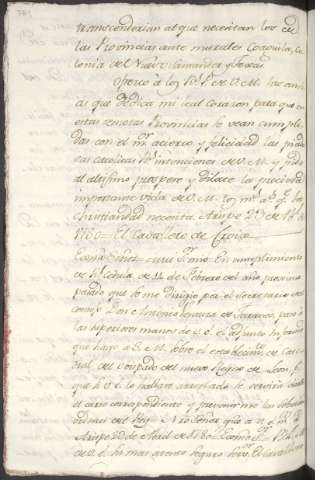 transcenderian al que necesitan los de
las Provincias ante murales Coaguila, Co
lonia del Nuevo Santander y Texas
Ofrezco à los R.s P.s de V. M. las ansi
as que dedica mi leal Corazon, para que en
estas remotas Provincias se vean cumpli
das con el m.r acierto y felicidad las piado
sas catolicas R.s intenciones de V. M. y pido
al altisimo prospere y dilate la preciosa
importante vida de V. M. los m.s a.s q.e la
Christiandad necesita Arispe 23 de Ab.l de
1780 = El Cavallero de Croix
En cumplimiento
de R.l Cedula de 14 de Febrero del año proximo
pasado que se me dirigio por el Secretario del
Consejo Don Antonio Ventura de Taranco, paso à
las superiores manos de V. E. el adjunto
que hago a S. M. sobre el establecim.to de Cate
dral del Obispado del nuevo Reyno de Leon, p.a
que si V. E. lo hallare arreglado se sirva darle
el curso correspondiente y prevenirme las
ordenes del Rey Nro Señor que a
Arispe 23 de Abril de 1780
de V. E. su mas atento seguro serv.or El Cavallero